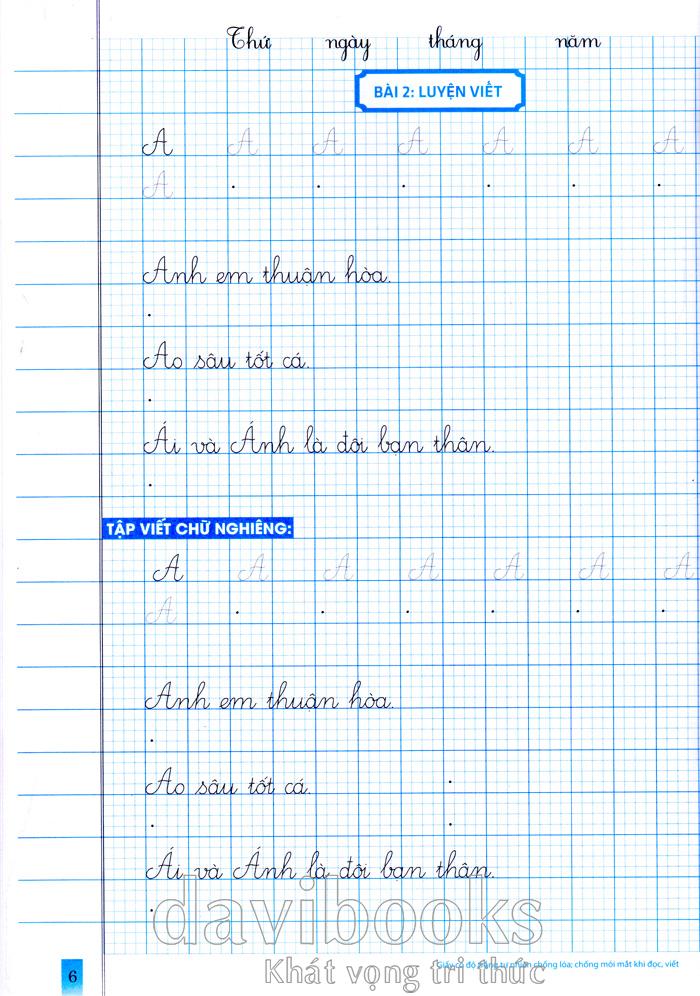 Thứ ngày tháng năm
BÀI 2: LUYỆN VIẾT
A A A A A A A
A . . . . . .
Anh em thuận hòa.
.
Ao sâu tốt cá.
.
Ái và Ánh là đôi bạn thân.
.
TẬP VIẾT CHỮ NGHIÊNG:
A A A A A A A
A . . . . . .
Anh em thuận hòa.
.
Ao sâu tốt cá. .
. .
Ái và Ánh là đôi bạn thân.
.
davibooks
Khát vọng tri thức
Giấy có độ trắng tự nhiên chống lóa; chống mỏi mắt khi đọc, viết
6